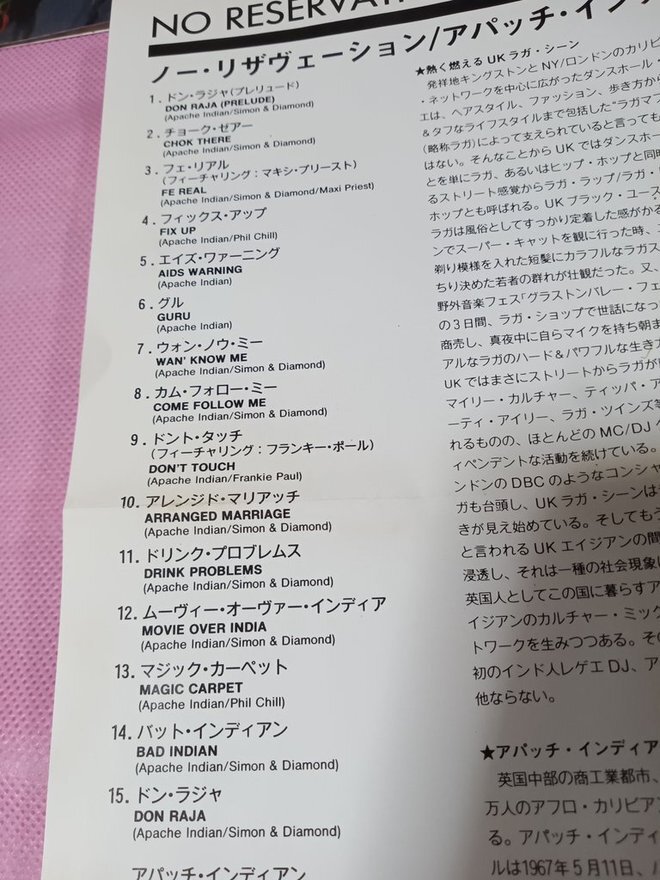 NO RESERVATI
ノー・リザヴェーション/アパッチ・インデ
1. ドン・ラジャ(プレリュード)
DON RAJA (PRELUDE)
(Apache Indian/Simon & Diamond)
2. チョーク・ゼアー
CHOK THERE
(Apache Indian/Simon & Diamond)
3. フェ・リアル
(フィーチャリング:マキシ・プリースト)
FE REAL
(Apache Indian/Simon & Diamond/Maxi Priest)
4. フィックス・アップ
FIX UP
(Apache Indian/Phil Chill)
5. エイズ・ワァーニング
AIDS WARNING
(Apache Indian)
6. グル
GURU
(Apache Indian)
7. ウォン・ノウ・ミー
WAN' KNOW ME
(Apache Indian/Simon & Diamond)
8. カム・フォロー・ミー
COME FOLLOW ME
(Apache Indian/Simon & Diamond)
9. ドント・タッチ
(フィーチャリング:フランキー・ポール)
DON'T TOUCH
(Apache Indian/Frankie Paul)
10. アレンジド・マリアッチ
ARRANGED MARRIAGE
(Apache Indian/Simon & Diamond)
11. ドリンク・プロブレムス
DRINK PROBLEMS
(Apache Indian/Simon & Diamond)
12. ムーヴィー・オーヴァー・インディア
MOVIE OVER INDIA
(Apache Indian/Simon & Diamond)
13. マジック・カーペット
MAGIC CARPET
(Apache Indian/Phil Chill)
14. バット・インディアン
BAD INDIAN
(Apache Indian/Simon & Diamond)
15. ドン・ラジャ
DON RAJA
(Apache Indian/Simon & Diamond)
アパッチ・インディアン
★熱く燃えるUKラガ・シーン
発祥地キングストンとNY/ロンドンのカリビ
・ネットワークを中心に広がったダンスホール・
エは、ヘアスタイル、ファッション、歩き方から
&タフなライフスタイルまで包括した“ラガマフ
(略称ラガ)によって支えられていると言っても
はない。そんなことからUKではダンスホー
とを単にラガ、あるいはヒップ・ホップと同時
るストリート感覚からラガ・ラップ/ラガ・
ホップとも呼ばれる。UKブラック・ユース
ラガは風俗としてすっかり定着した感がある
ンでスーパー・キャットを観に行った時、
剃り模様を入れた短髪にカラフルなラガス
ちり決めた若者の群れが壮観だった。又、
野外音楽フェス「グラストンバレー・フェ
の3日間、ラガ・ショップで世話になっ
商売し、真夜中に自らマイクを持ち朝ま
アルなラガのハード&パワフルな生き方
UKではまさにストリートからラガが
マイリー・カルチャー、ティッパ・ア
ーティ・アイリー、ラガ・ツインズ等
れるものの、ほとんどのMC/DJ
ィペンデントな活動を続けている。
ンドンのDBCのようなコンシャ
ガも台頭し、UKラガ・シーンは
きが見え始めている。そしてもう
と言われるUKエイジアンの間
浸透し、それは一種の社会現象
英国人としてこの国に暮らすア
イジアンのカルチャー・ミック
トワークを生みつつある。その
初のインド人レゲエDJ、ア
他ならない。
★アパッチ・インディア
英国中部の商工業都市、
万人のアフロ・カリビア
る。アパッチ・インディ
ルは1967年5月11日、